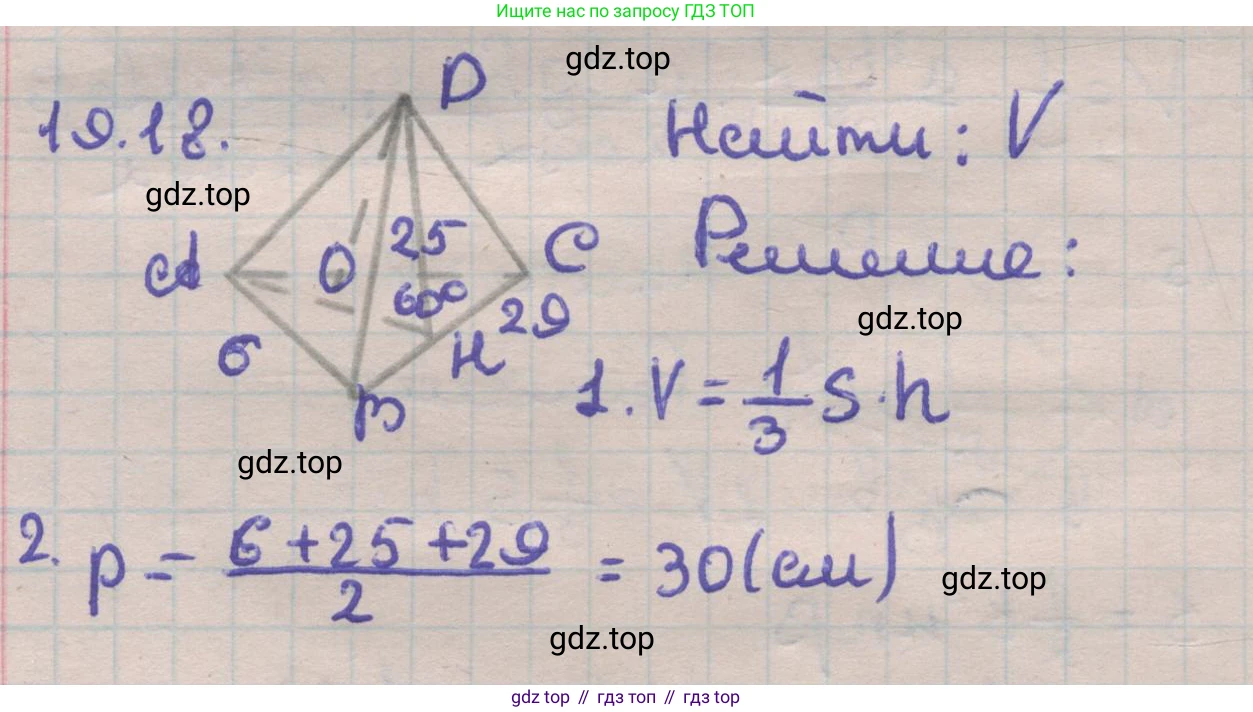 Ищите нас по запросу ГДЗ ТОП
gdz.top
19.18.
D
Найти: V
gdz.top
A
O
25
C
Решение:
60°
29
gdz.top
6
H
B
1. V = 1/3 S · h
gdz.top
2. p = (6 + 25 + 29)/2 = 30 (см)
gdz.top
gdz.top
gdz top // гдз топ // gdz top